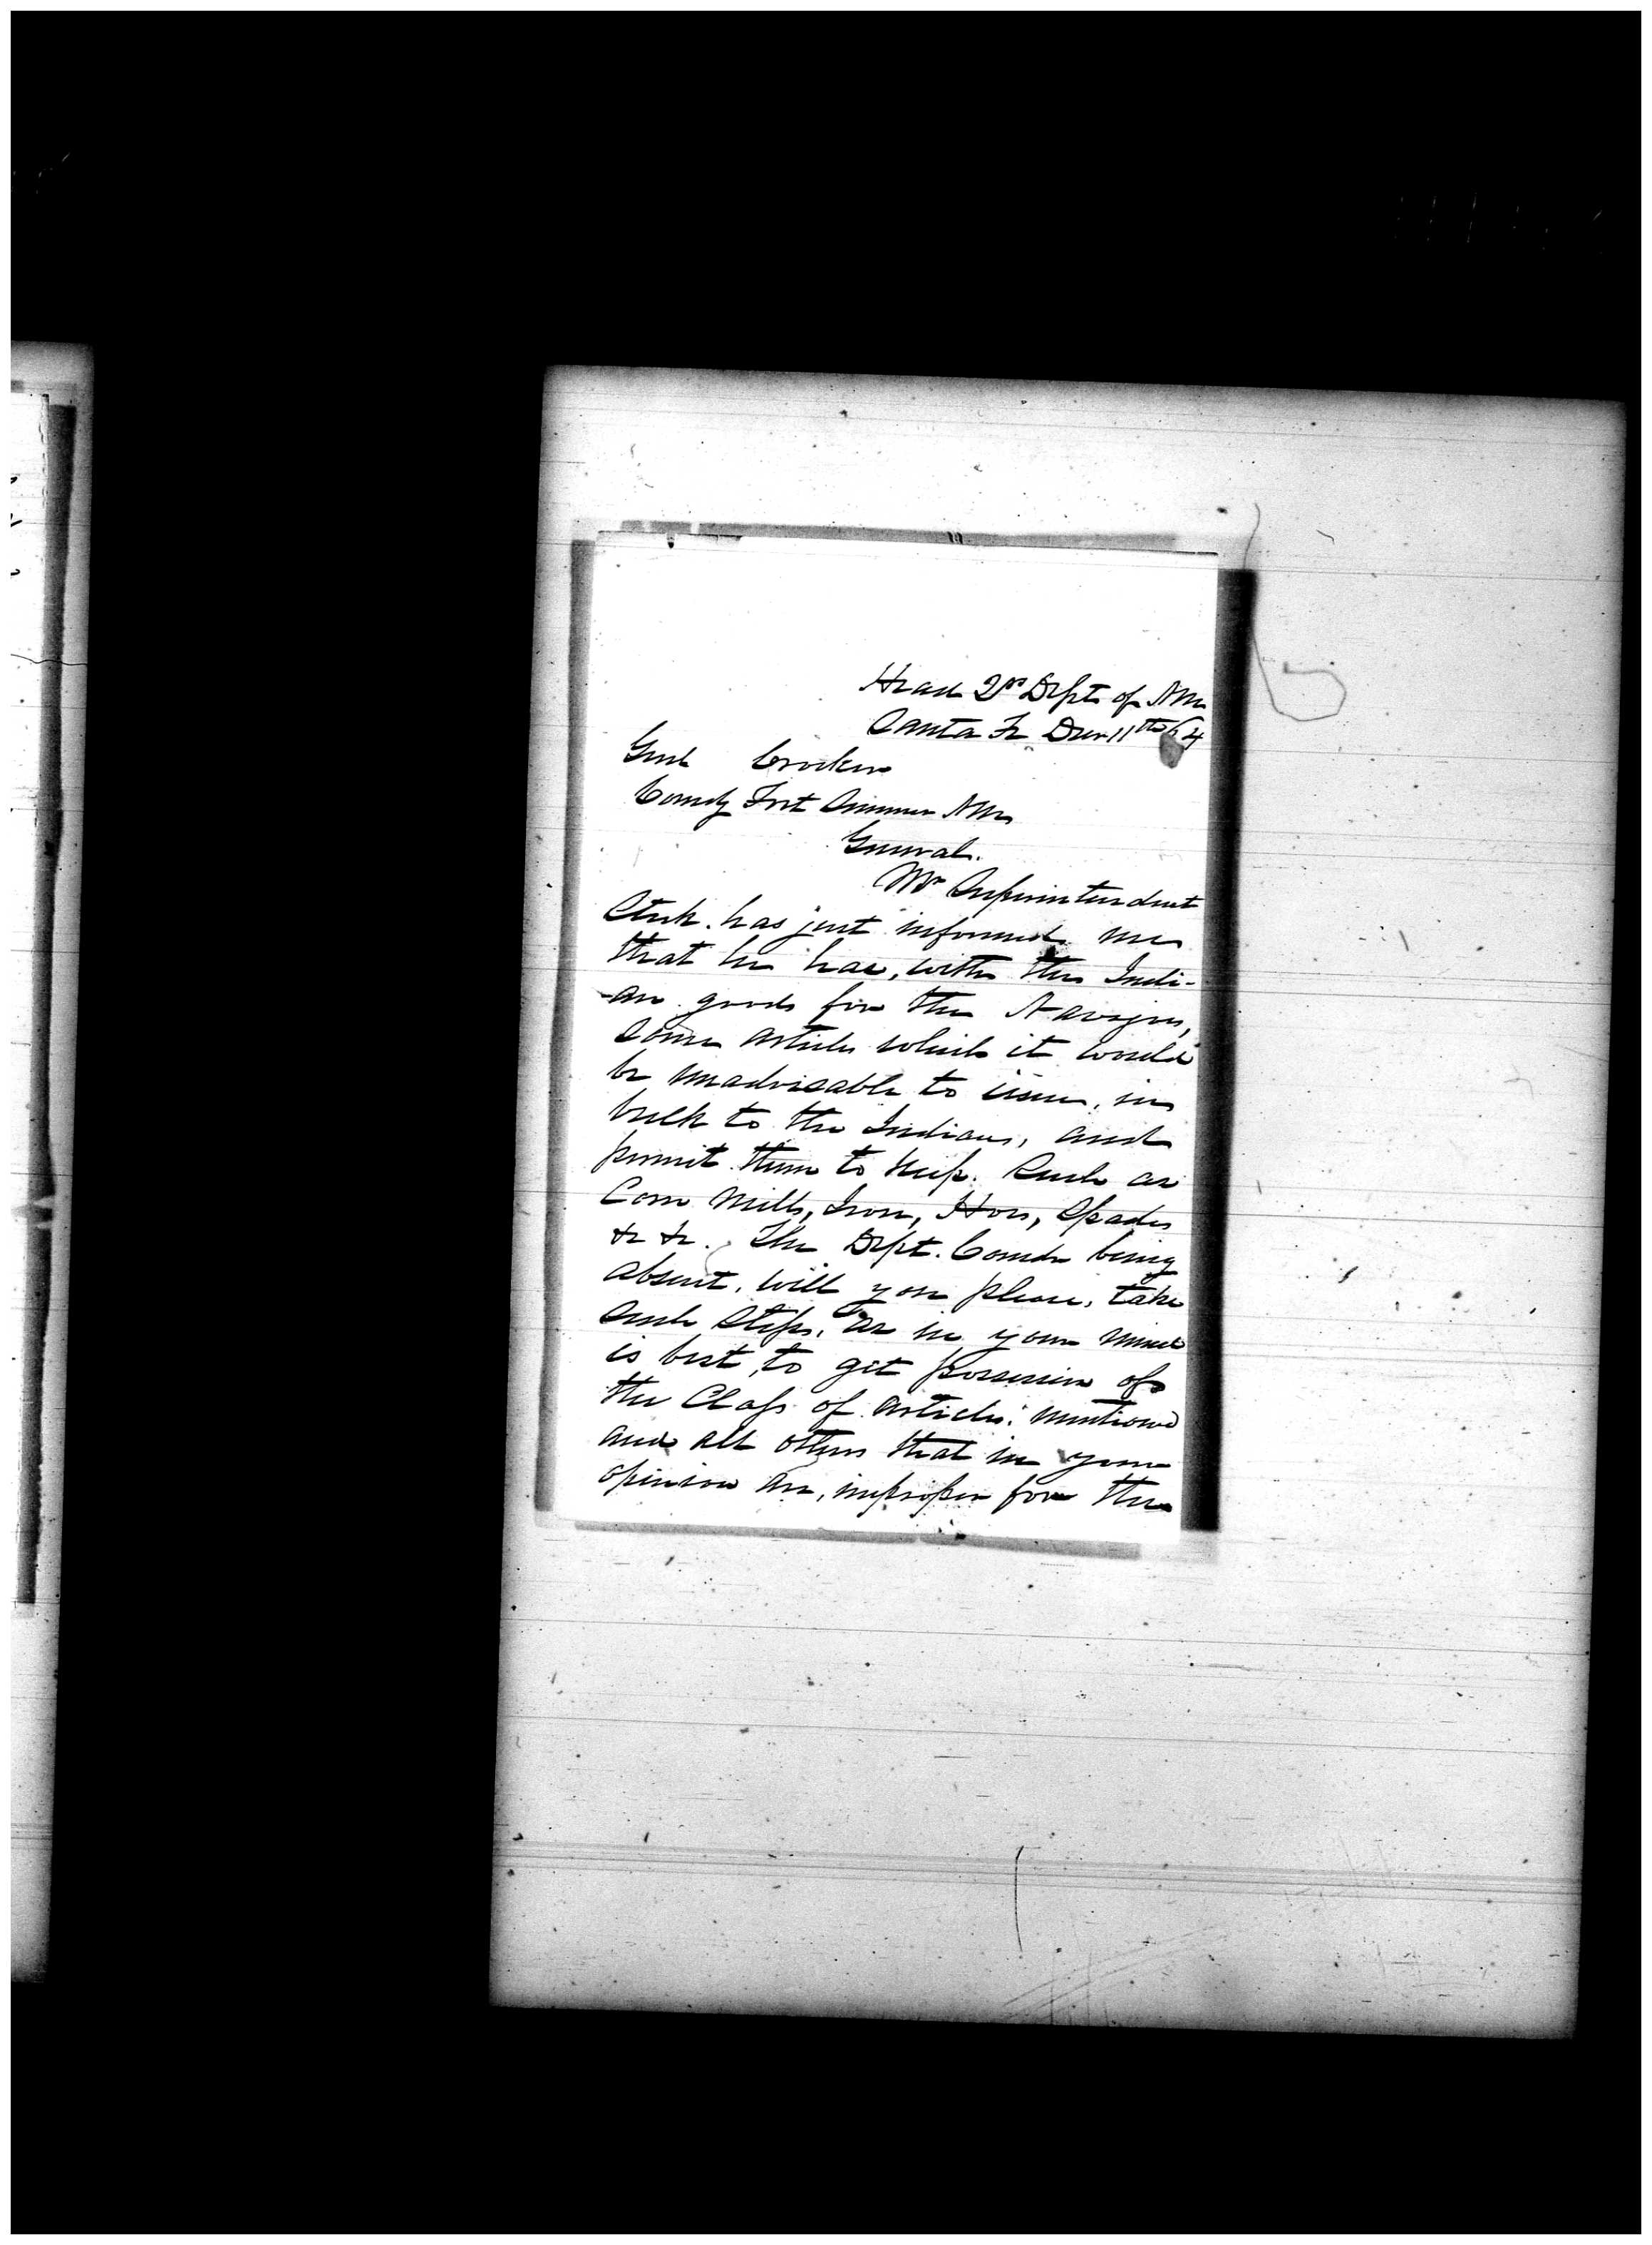 Head Qrs Dept of NM
Santa Fe Decr 11th 64
Genl Crocker
Comdg Fort Sumner NM
General.
Mr Superintendent
Steck. has just informed me
that he has, with the Indi-
an goods for the Navajoes,
some articles which it would
be unadvisable to issue, in
bulk to the Indians, and
permit them to keep. Such as
Corn Mills, Iron, Hoes, Spades
&c &c. The Dept. Comdr being
absent, will you please, take
such steps, as in your mind
is best, to get possession of
the Class of articles mentioned
and all others that in your
opinion are, improper for the